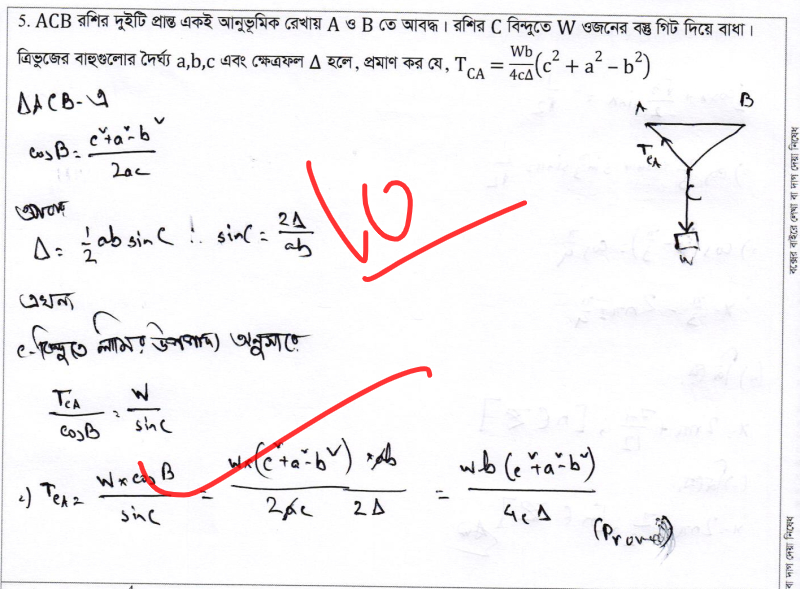 5. ACB রশির দুইটি প্রান্ত একই আনুভূমিক রেখায় A ও B তে আবদ্ধ। রশির C বিন্দুতে W ওজনের বস্তু গিট দিয়ে বাধা।
ত্রিভুজের বাহুগুলোর দৈর্ঘ্য a,b,c এবং ক্ষেত্রফল Δ হলে, প্রমাণ কর যে, T_CA = Wb/4cΔ (c² + a² – b²)
ΔACB-এ
cosB = c²+a²-b² / 2ac
আবার
Δ = 1/2 ab sinC ∴ sinC = 2Δ/ab
এখন
C-বিন্দুতে লামির উপপাদ্য অনুসারে
T_CA/cosB = W/sinC
∴ T_CA = W×cosB/sinC = W×(c²+a²-b²)×ab / 2ac 2Δ = Wb(c²+a²-b²) / 4cΔ
(Proved)
A
B
T_CA
C
W
10
বক্সের বাইরে লেখা বা দাগ দেয়া নিষেধ
বা দাগ দেয়া নিষেধ